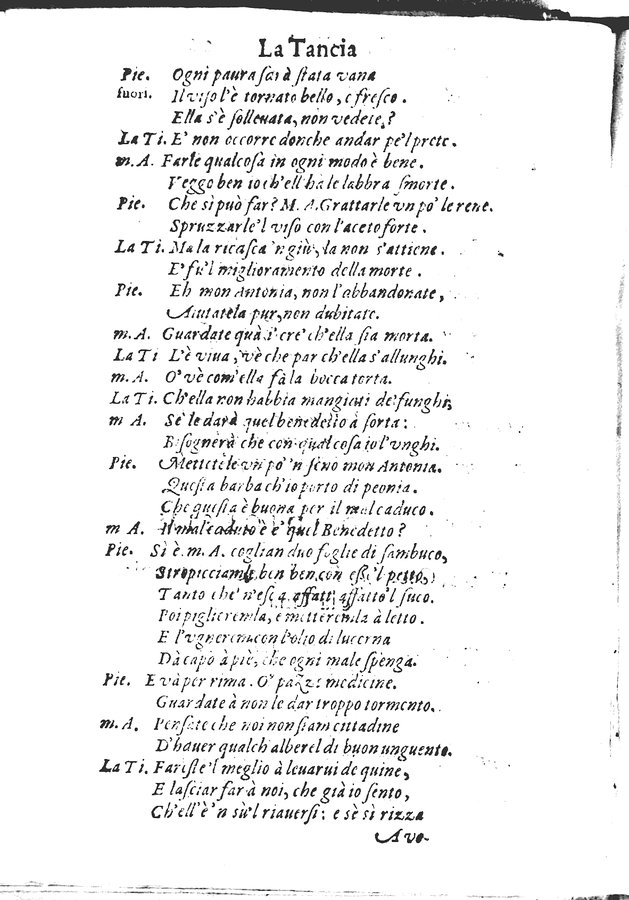 La Tancia
Pie. Ogni paura sarà stata vana
fuori. Il viso l'è tornato bello, e fresco.
Ella s'è solleuata, non vedete?
La Ti. E' non occorre donche andar pe'l prete.
m. A. Farle qualcosa in ogni modo è bene.
Veggo ben io ch'ell ha le labbra smorte.
Pie. Che si può far? M. A. Grattarle vn po' le rene.
Spruzzarle'l viso con l'aceto forte.
La Ti. Ma la ricasca 'n giù, la non s'attiene.
E' fu'l miglioramento della morte.
Pie. Eh mon Antonia, non l'abbandonate,
Aiutatela pur, non dubitate.
m. A. Guardate quà, i' cre' ch'ella sia morta.
La Ti L'è viua, vè che par ch'ella s'allunghi.
m. A. O' vè com'ella fà la bocca torta.
La Ti. Ch'ella non habbia mangiati de' funghi,
m A. Se le darà quel benedetto a sorta:
Bisognerà che con qualcosa io l'vnghi.
Pie. Mettetele vn po' 'n seno mon Antonia.
Questa barba ch'io porto di peonia.
Che questa è buona per il mal caduco.
m A. Il mal caduco è e' quel Benedetto?
Pie. Sì è. m. A. coglian duo foglie di sambuco,
Stropicciamle ben ben con essi'l petto,
Tanto che n'esca affatto'l suco.
Poi piglierenla, e metterenla à letto.
E l'vgneren con l'olio di lucerna
Dà capo à piè, che ogni male spenga.
Pie. E và per rima. O' pazze medicine.
Guardate à non le dar troppo tormento.
m. A. Pensate che noi non siam cittadine
D'hauer qualch alberel di buon vnguento.
La Ti. Fareste'l meglio à leuarui de quine,
E lasciar far à noi, che già io sento,
Ch'ell'è 'n sù'l riauersi: e sè si rizza
Avo-